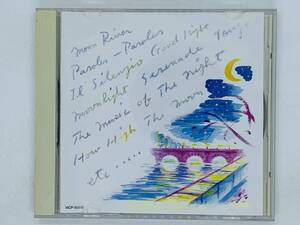 Moon River
Paroles - Paroles
Il Silenzio Good Night Tango
Moonlight Serenade
The music of The Night
How High The Moon
etc.....